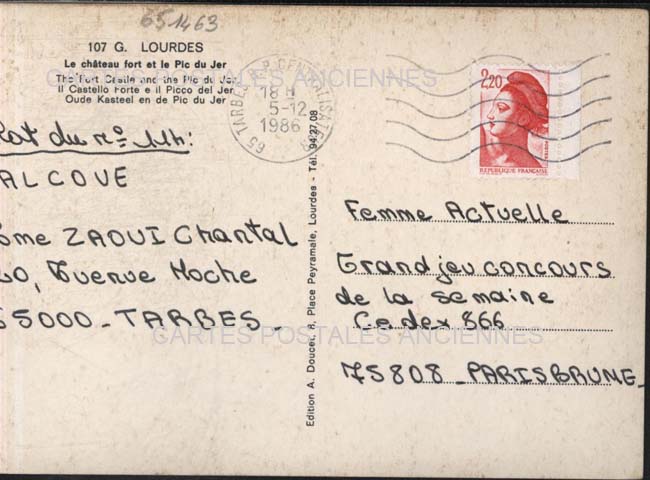 651463
107 G. LOURDES
Le château fort et le Pic du Jer
The Fort Castle and the Pic du Jer
Il Castello Forte e il Picco del Jer
Oude Kasteel en de Pic du Jer
CARTES POSTALES ANCIENNES
65 TARBES
18 H
5-12
1986
2,20
REPUBLIQUE FRANÇAISE
du nº 114:
ALCOVE
ZAOUI Chantal
Hoche
65000 - TARBES -
Edition A. Doucet, 8, Place Peyramale, Lourdes - Tél. 94.27.08
Femme Actuelle
Grand jeu concours
de la semaine
Cedex 866
75808 - PARIS BRUNE -
CARTES POSTALES ANCIENNES